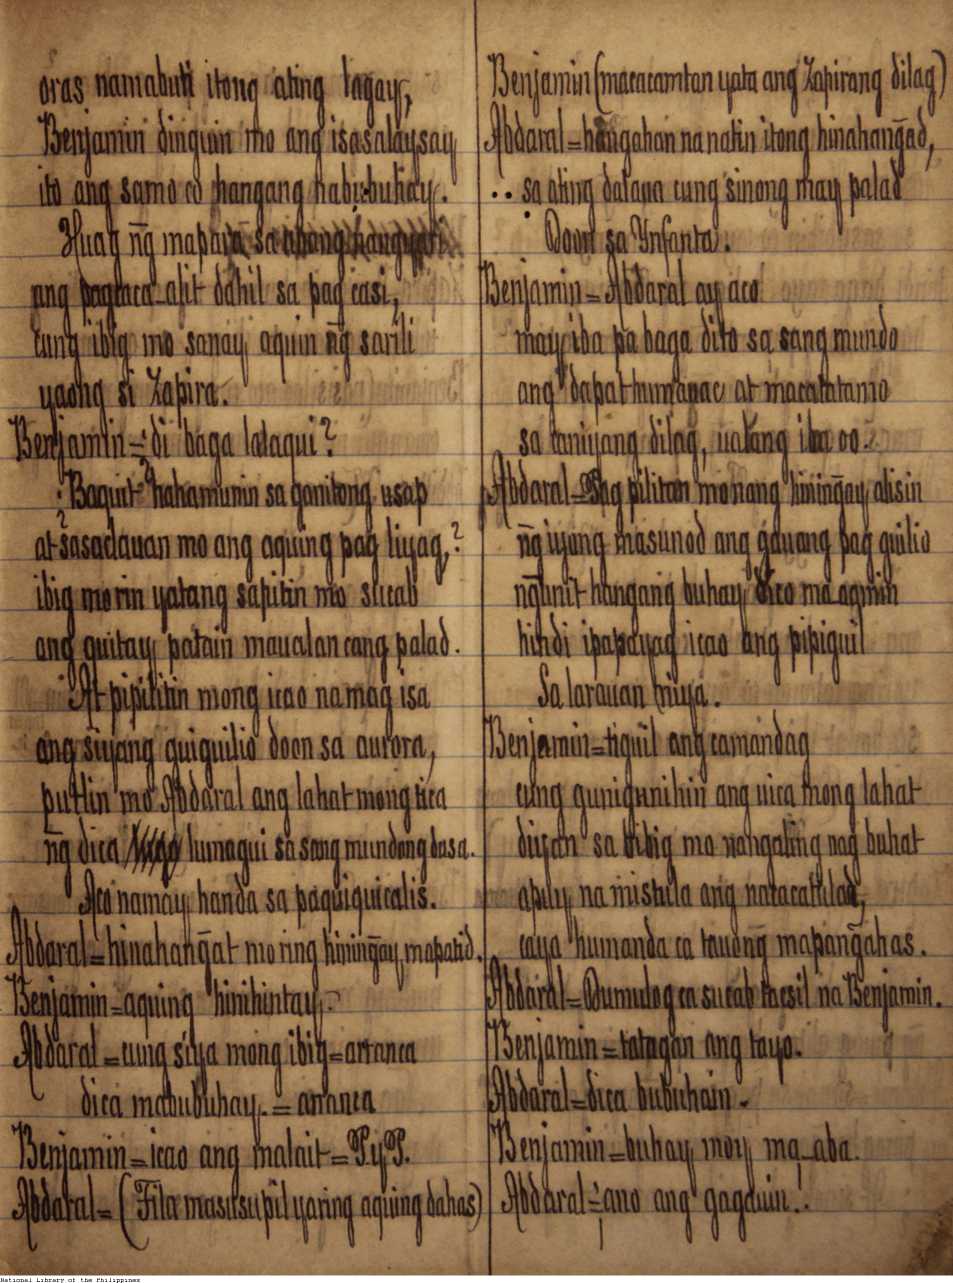 oras namabuti itong ating lagay,
Benjamin dinguin mo ang isasalaysay
ito ang samo co hangang nabubuhay.
Huag ñg mapara sa
ang pagcaca-alit dahil sa pag casi,
cung ibig mo sanay, aquin ñg sarili
yaong si Zapira.
Benjamin=di baga lalaqui?
Baquit hahamunin sa ganitong usap
at sasaclauan mo ang aquing pag liyag,?
ibig mo rin yatang sapitin mo sucab
ang quitay patain maualan cang palad.
At pipilitin mong icao na mag isa
ang siyang quiquilio doon sa aurora,
putlin mo Abdaral ang lahat mong tica
ñg dica lumagui sa sang mundong basa.
Aco namay, handa sa paquiquicalis.
Abdaral=hinahanḡat mo ring hininḡay mapatid.
Benjamin=aquing hinihintay,
Abdaral=cung siya mong ibig=arranca
dica mabubuhay.=arranca
Benjamin=icao ang malait=P.yP.
Abdaral=(Fila masusupil yaring aquing dahas)
Benjamin(macacamtan yata ang Zapirang dilag)
Abdaral=hanḡahan na natin itong hinahanḡad,
sa ating dalaua cung sinong may palad
Doon sa Ynfanta.
Benjamin=Abdaral ay aco
may iba pa baga dito sa sang mundo
ang dapat humanac at macatatamo
sa caniyang dilag, ualang iba co.
Abdaral=Pag pilitan mo nang hininḡay alisin
ñg iyong masunod ang gauang pag guilio
nḡunit hangang buhay dico ma-aamin
hindi ipapayag icao ang pipiguil
Sa larauan niya.
Benjamin=tiguil ang camandag
cung gunigunihin ang uica mong lahat
diyan sa bibig mo nangaling nag buhat
apuy, na mistula ang nacacatulad,
caya humanda ca tauong mapanḡahas.
Abdaral=Dumulog ca sucab tacsil na Benjamin.
Benjamin=tatagan ang tayo.
Abdaral=dica bubuhain.
Benjamin=buhay, moy, ma-aba.
Abdaral=¡ano ang gagauin!.